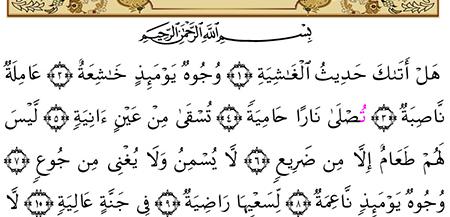 بِسْمِ ٱللَّهِ ٱلرَّحْمَٰنِ ٱلرَّحِيمِ
هَلْ أَتَىٰكَ حَدِيثُ ٱلْغَٰشِيَةِ ﴿١﴾ وُجُوهٌ يَوْمَئِذٍ خَٰشِعَةٌ ﴿٢﴾ عَامِلَةٌ
نَّاصِبَةٌ ﴿٣﴾ تُصْلَىٰ نَارًا حَامِيَةً ﴿٤﴾ تُسْقَىٰ مِنْ عَيْنٍ ءَانِيَةٍ ﴿٥﴾ لَّيْسَ
لَهُمْ طَعَامٌ إِلَّا مِن ضَرِيعٍ ﴿٦﴾ لَّا يُسْمِنُ وَلَا يُغْنِى مِن جُوعٍ ﴿٧﴾
وُجُوهٌ يَوْمَئِذٍ نَّاعِمَةٌ ﴿٨﴾ لِّسَعْيِهَا رَاضِيَةٌ ﴿٩﴾ فِى جَنَّةٍ عَالِيَةٍ ﴿١٠﴾ لَّا